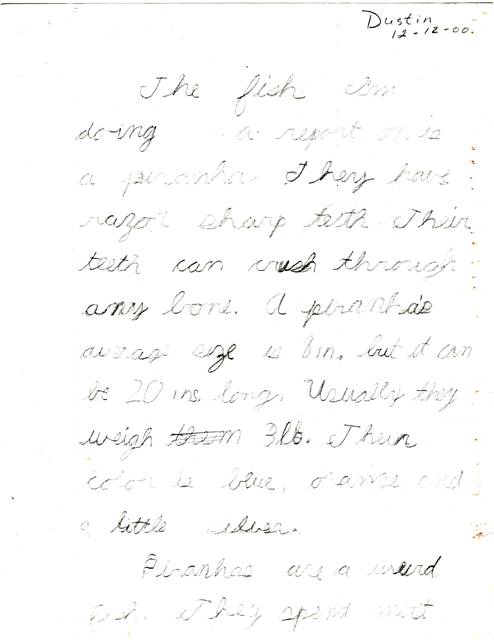 Dustin
12-12-00.
The fish Im
doing a report on is
a piranha. They have
razor sharp teeth. Their
teeth can crush through
any bone. A piranha's
average size is 8 in. but it can
be 20 ins. long. Usually they
weigh them 3 lb. Their
color is blue, orange and
a little silver.
Piranhas are a weird
fish. They spend most